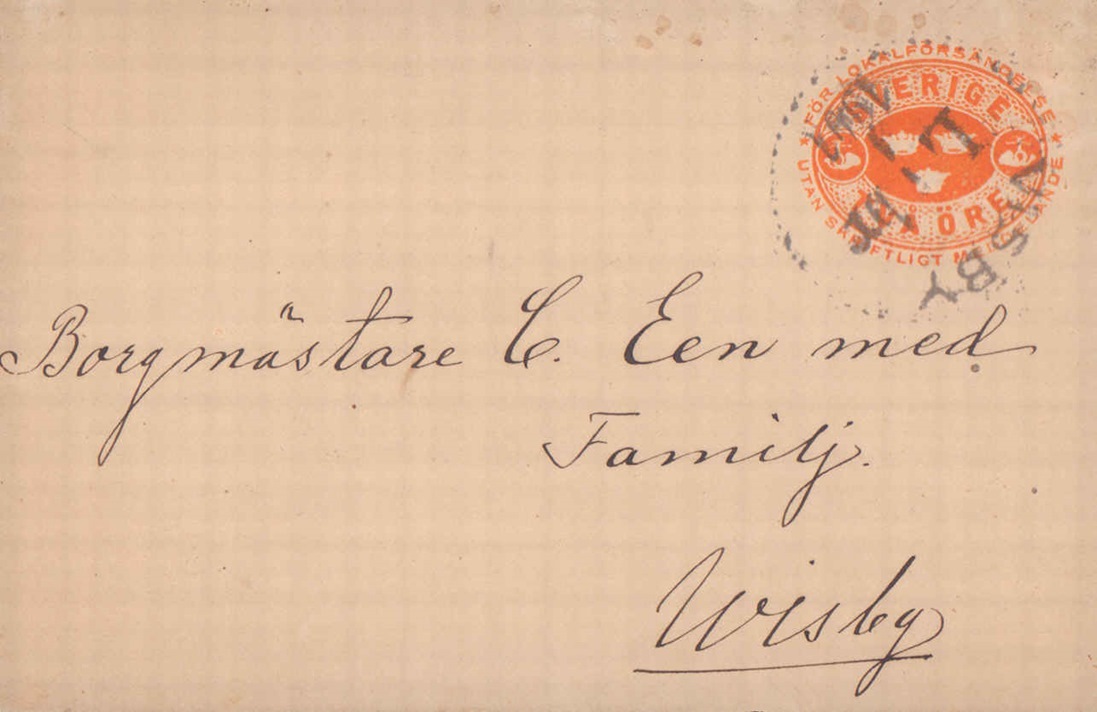 ★ FÖR LOKALFÖRSÄNDELSE ★
SVERIGE
TVÅ ÖRE
UTAN SKRIFTLIGT MEDDELANDE
VISBY
Borgmästare C. Een med
Familj.
Wisby